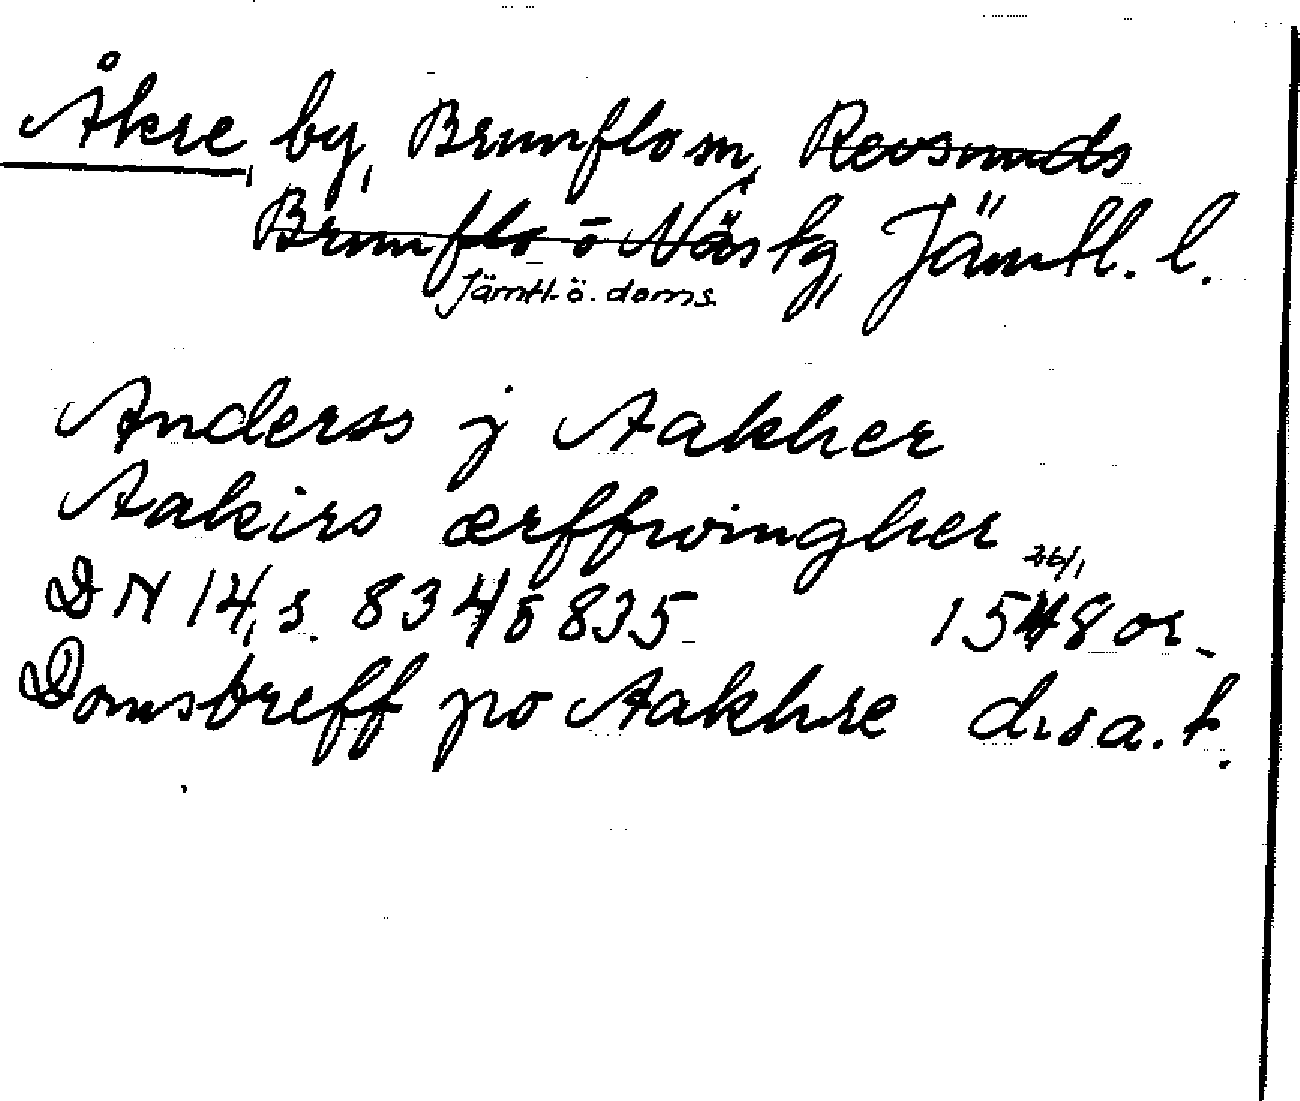 Åkre by, Brunflo sn, Revsunds
Brunflo o Näs tg, Jämtl. l.
Jämtl. ö. doms.
Anderss j Aakher
Aakirs ærffwingher
26/1
DN 14, s. 834 o 835 1548 or.
Domsbreff po Aakhre drsa. t.